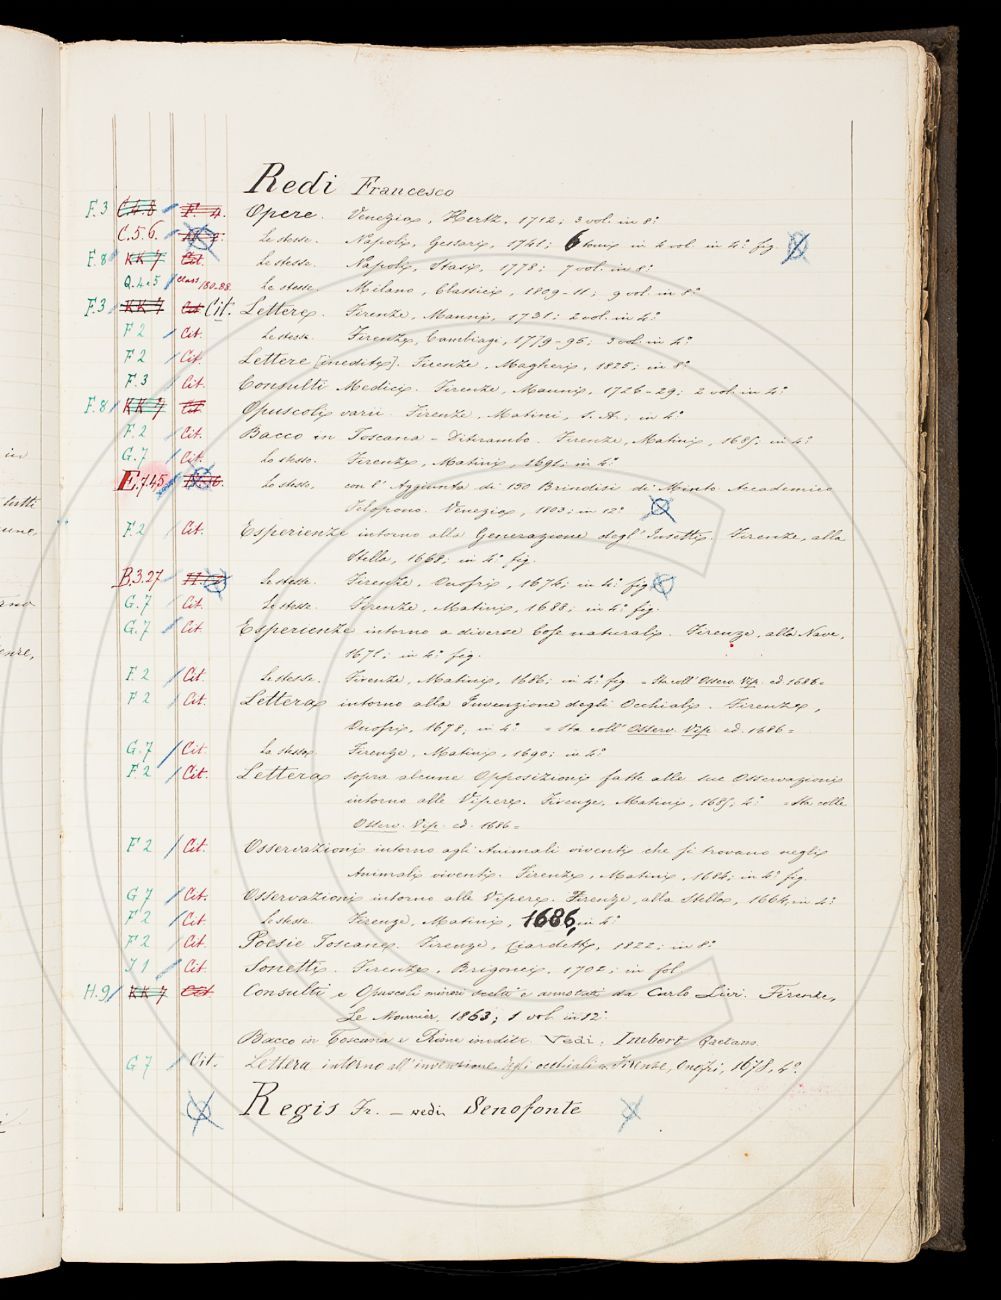 Redi Francesco
F.3 C.4.8 F. 4. Opere. Venezia, Hertz, 1712; 3 vol. in 8°
C.5.6. Le stesse. Napoli, 1741; 6 tomi in 4 vol. in 4° fig.
F.8 KK 7 Cit. Le stesse. Napoli, Stasi, 1778; 7 vol. in 8°
Q.4e5 class. 180-88. Le stesse. Milano, Classici, 1809-11; 9 vol. in 8°
F.3 KK 7 Cit Cit. Lettere. Firenze, Manni, 1731; 2 vol. in 4°
F 2 Cit. Le stesse. Firenze, Cambiagi, 1779-95; 3 vol. in 4°
F 2 Cit. Lettere [inedite]. Firenze, Magheri, 1825; in 8°
F.3 Cit. Consulti Medici. Firenze, Manni, 1726-29; 2 vol. in 4°
F.8 KK 7 Cit Opuscoli varii. Firenze, Matini, s. A.; in 4°
F.2 Cit. Bacco in Toscana - Ditirambo. Firenze, Matini, 1685; in 4°
G.7 Cit. Lo stesso. Firenze, Matini, 1691; in 4°
E.7.45 Lo stesso, con l' Aggiunta di 150 Brindisi di Minto Accademico
Filopono. Venezia, 1803; in 12°
F.2 Cit. Esperienze intorno alla Generazione degl' Insetti. Firenze, alla
Stella, 1668; in 4° fig.
B.3.27 Le stesse. Firenze, Onofri, 1674; in 4° fig.
G.7 Cit. Le stesse. Firenze, Matini, 1688; in 4° fig.
G.7 Cit Esperienze intorno a diverse Cose naturali. Firenze, alla Nave,
1671; in 4° fig.
F.2 Cit. Le stesse. Firenze, Matini, 1686; in 4° fig. = Sta coll' Osserv. Vip. ed. 1686 =
F 2 Cit. Lettera intorno alla Invenzione degli Occhiali. Firenze,
Onofri, 1678; in 4° = Sta coll' Osserv. Vip. ed. 1686 =
G.7 Cit. La stessa. Firenze, Matini, 1690; in 4°
F 2 Cit. Lettera sopra alcune Opposizioni fatte alle sue Osservazioni
intorno alle Vipere. Firenze, Matini, 1685; 4° = Sta colle
Osserv. Vip. ed. 1686 =
F 2 Cit. Osservazioni intorno agli Animali viventi che si trovano negli
Animali viventi. Firenze, Matini, 1684; in 4° fig.
G 7 Cit. Osservazioni intorno alle Vipere. Firenze, alla Stella, 1664, in 4°
F 2 Cit. Le stesse. Firenze, Matini, 1686, in 4°
F 2 Cit. Poesie Toscane. Firenze, Ciardetti, 1822; in 8°
I 1 Cit. Sonetti. Firenze, Brigonci, 1702; in fol.
H.9 KK 7 Cit Consulti e Opuscoli minori scelti e annotati da Carlo Livi. Firenze,
Le Monnier, 1863; 1 vol. in 12°
Bacco in Toscana e Rime inedite. Vedi, Imbert Gaetano.
G 7 Cit. Lettera intorno all' invenzione degli occhiali. Firenze, Onofri, 1678, 4°.
Regis Fr. - vedi Senofonte
in
tutti